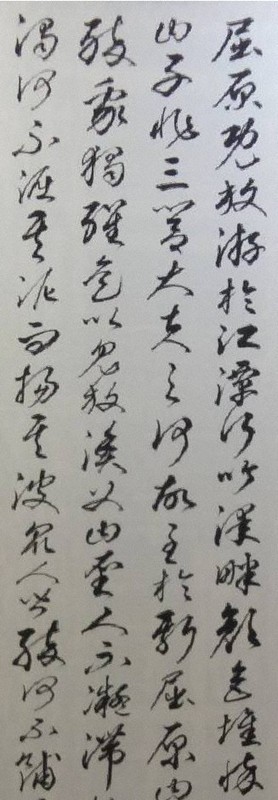 屈原既放游於江潭行吟澤畔顏色憔悴
曰子非三閭大夫與何故至於斯屈原曰
醉我獨醒是以見放漁父曰聖人不凝滯
濁何不淈其泥而揚其波眾人皆醉何不餔